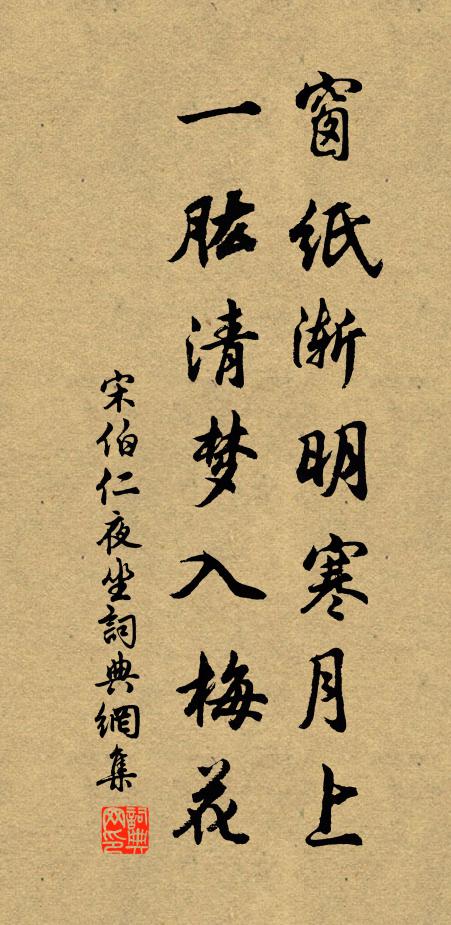 窗纸渐明寒月上
一肱清梦入梅花
宋伯仁夜坐詞典網集
詞典网印